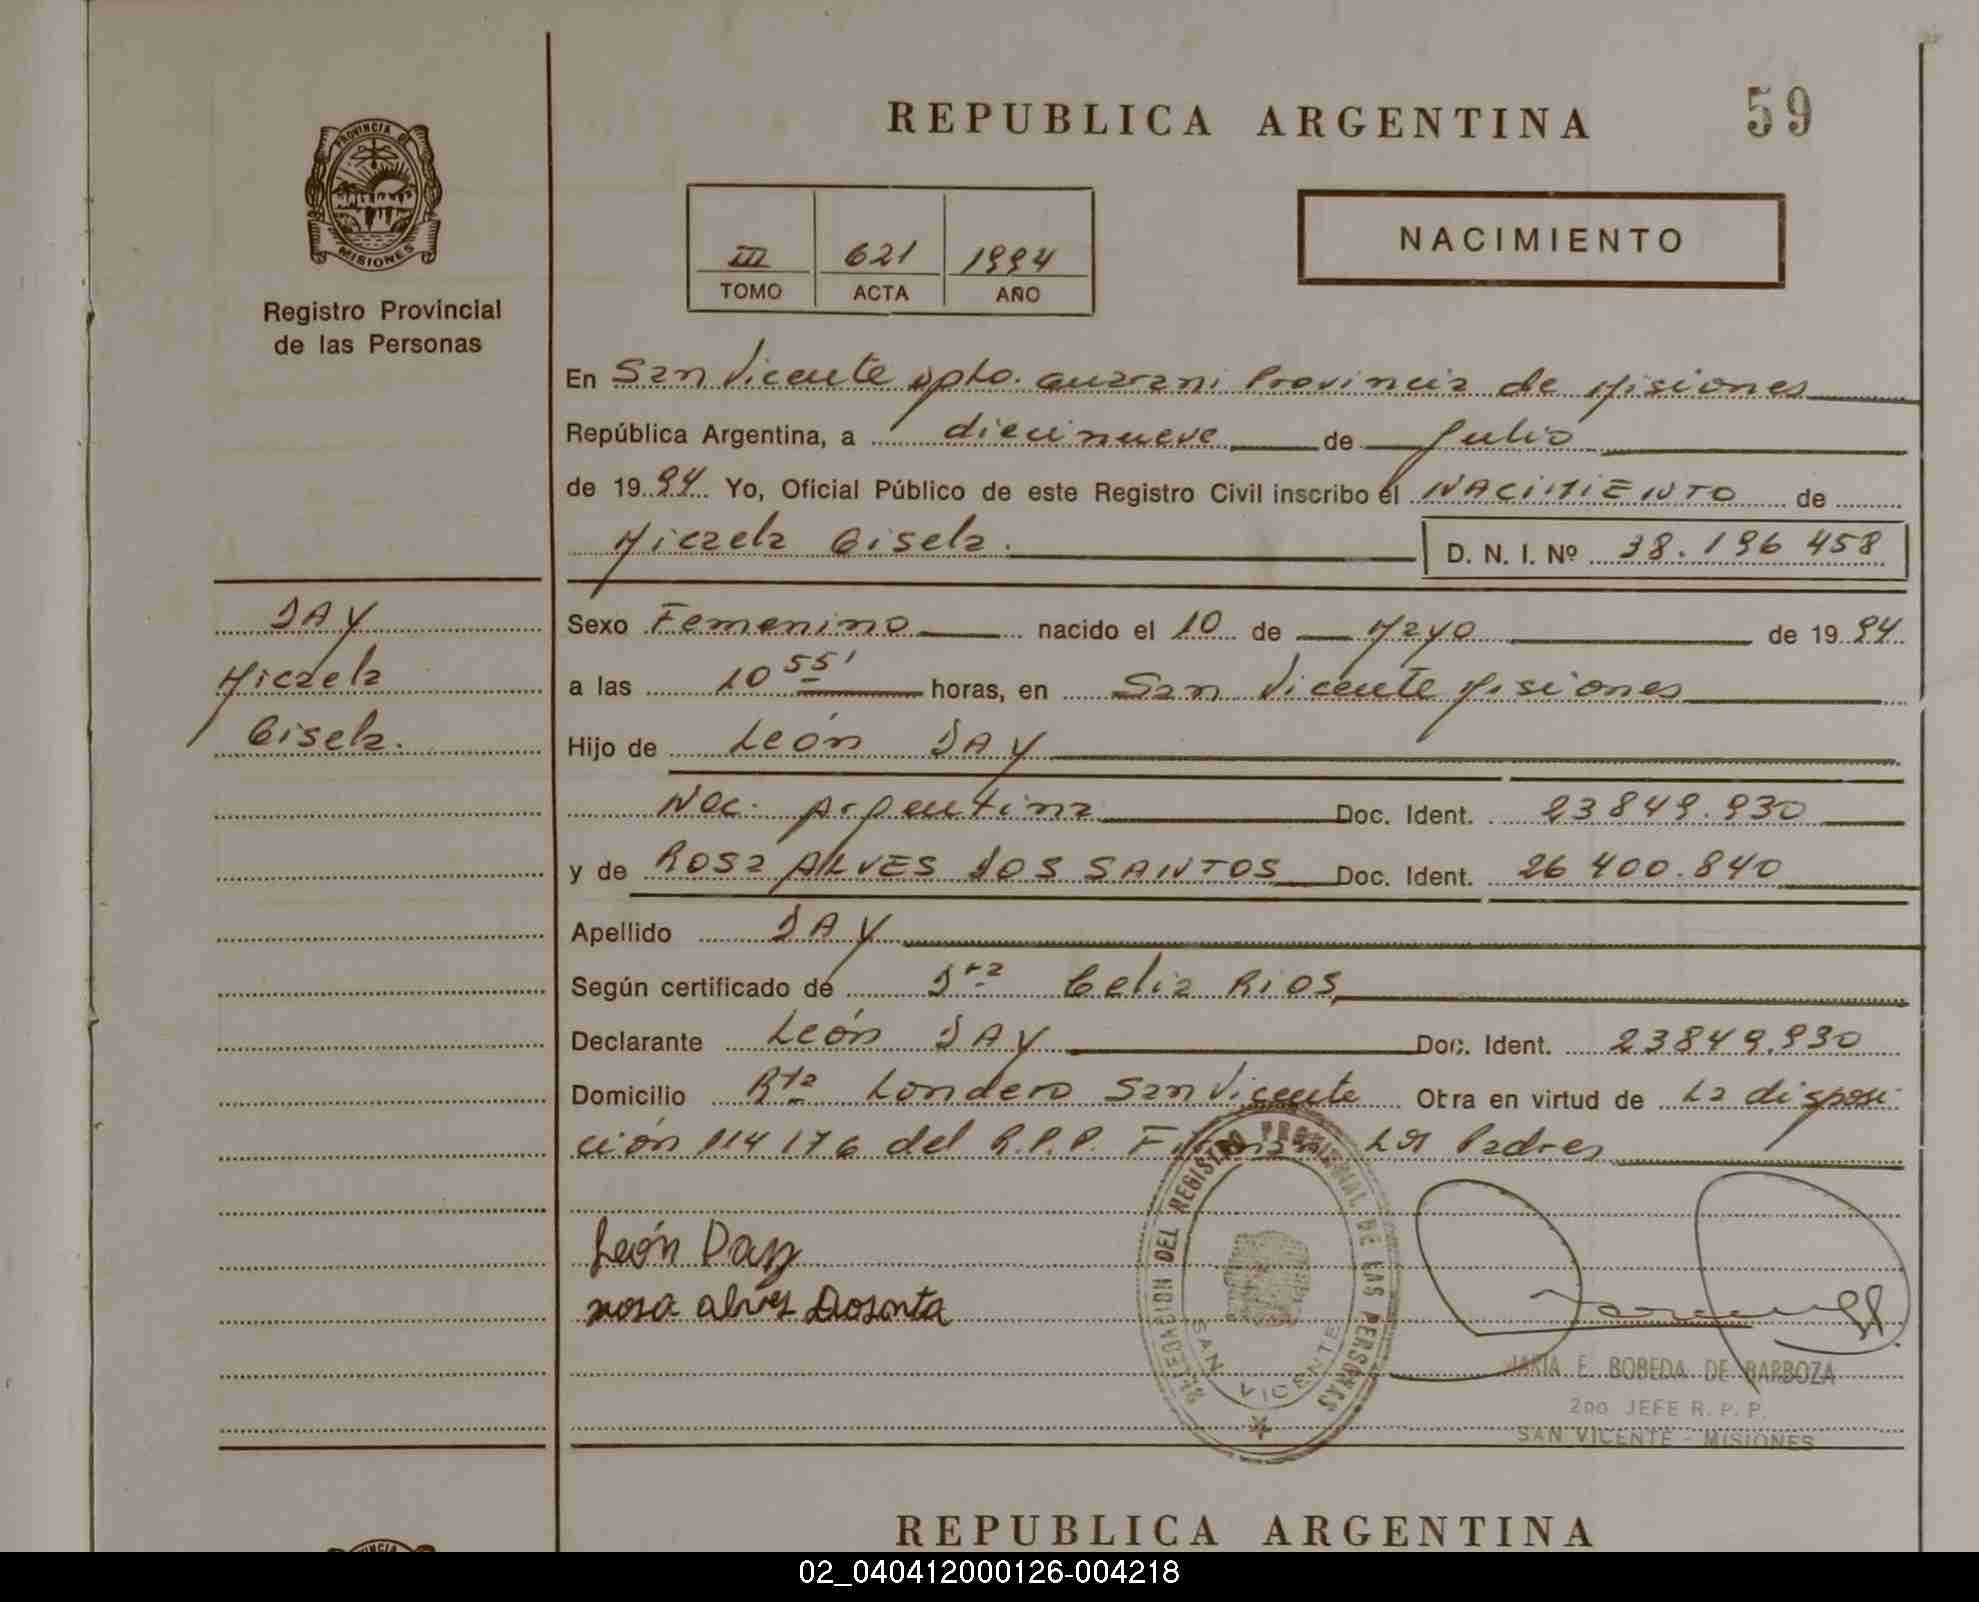 REPUBLICA ARGENTINA
59
PROVINCIA DE
MISIONES
Registro Provincial
de las Personas
III 621 1994
TOMO ACTA AÑO
NACIMIENTO
En San Vicente Dpto. Guarani Provincia de Misiones
República Argentina, a diecinueve de Julio
de 1994 Yo, Oficial Público de este Registro Civil inscribo el NACIMIENTO de
Micaela Gisela.
D. N. I. Nº 38.196 458
DAY
Micaela
Gisela.
Sexo Femenino nacido el 10 de Mayo de 1994
a las 10 55' horas, en San Vicente Misiones
Hijo de León DAY
Nac. Argentina Doc. Ident. 23849.930
y de ROSa ALVES DOS SANTOS Doc. Ident. 26 400.840
Apellido DAY
Según certificado de Dra Celia Rios
Declarante León DAY Doc. Ident. 23849.930
Domicilio Rta Londero San Vicente Obra en virtud de La disposi
ción 114 176 del R.P.P. Firman Los Padres
León Day
rosa alves Dosonta
DELEGACION DEL REGISTRO PROVINCIAL DE LAS PERSONAS
SAN VICENTE
MARIA E. BOBEDA DE BARBOZA
2do JEFE R. P. P.
SAN VICENTE - MISIONES
REPUBLICA ARGENTINA
02_040412000126-004218